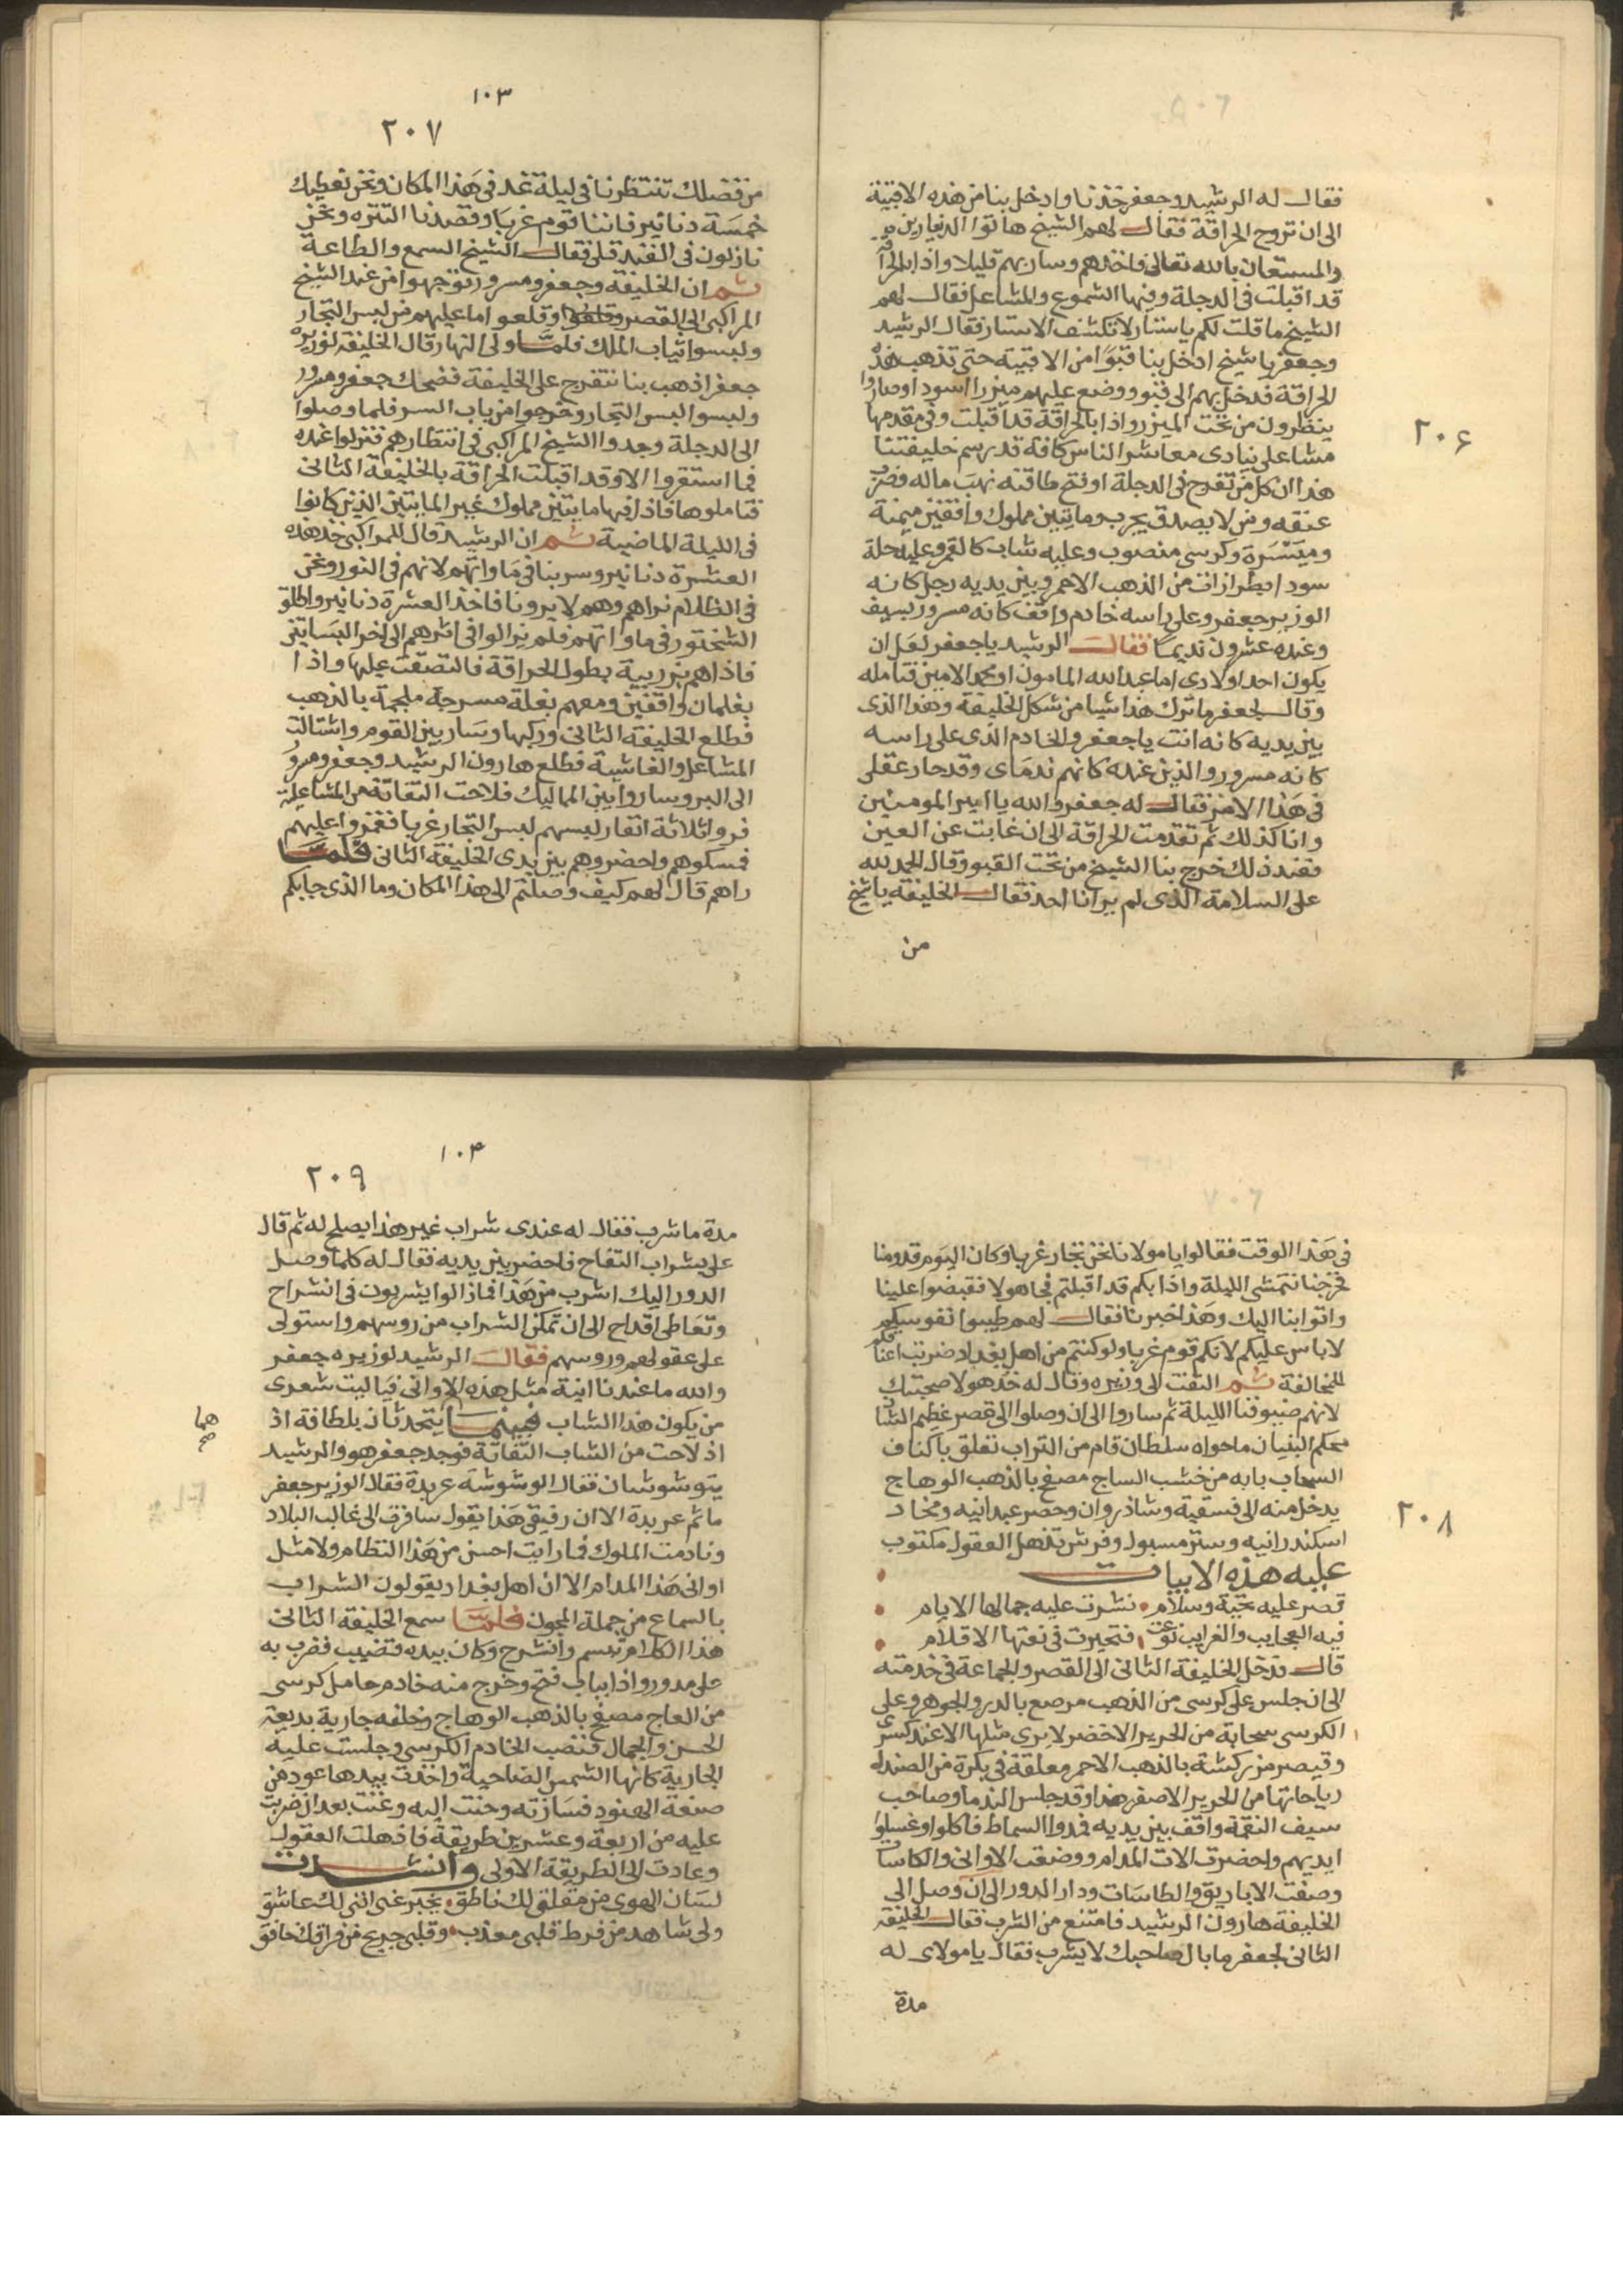 ٢٠۶
فقال له الرشيد وجعفر خذنا وادخل بنا من هذه الاقبية
الى ان تروح الحراقة فقال لهم الشيخ هاتوا الدينارين
والمستعان بالله تعالى فاخذهم وسار بهم قليلا واذا بالحراقة
قد اقبلت في الدجلة وفيها الشموع والمشاعل فقال لهم
الشيخ ما قلت لكم ياستار لا تكشف الاستار فقال الرشيد
وجعفر يا شيخ ادخل بنا قبوا من الاقبية حتى تذهب هذه
الحراقة فدخل بهم الى قبو ووضع عليهم ميزرا اسود وصاروا
ينظرون من تحت الميزر واذا بالحراقة قد اقبلت وفي مقدمها
مشاعلي ينادى معاشر الناس كافة قد رسم خليفتنا
هذا ان كل من تفرج في الدجلة او فتح طاقته نهب ماله وضرب
عنقه ومن لا يصدق يجرب ومايتين مملوك واقفين ميمنة
وميسرة وكرسي منصوب وعليه شاب كالقمر وعليه حلة
سودا بطرازات من الذهب الاحمر وبين يديه رجل كانه
الوزير جعفر وعلى راسه خادم واقف كانه مسرور بسيف
وعنده عشرون نديما فقال الرشيد يا جعفر لعل ان
يكون احد اولادى اما عبد الله المامون او محمد الامين فتامله
وقال لجعفر ما ترك هذا شيا من شكل الخليفة وهذا الذى
بين يديه كانه انت يا جعفر والخادم الذى على راسه
كانه مسرور والذين عنده كانهم ندماى وقد حار عقلى
في هذا الامر فقال له جعفر والله يا امير المومنين
وانا كذلك ثم تقدمت الحراقة الى ان غابت عن العين
فعند ذلك خرج بنا الشيخ من تحت القبو وقال الحمد لله
على السلامة الذى لم يرانا احد فقال الخليفة يا شيخ
من
١٠٣
٢٠٧
من فضلك تنتظرنا في ليلة غد في هذا المكان ونحن نعطيك
خمسة دنانير فاننا قوم غربا وقصدنا التنزه ونحن
نازلون في الفندقلى فقال الشيخ السمع والطاعة
ثم ان الخليفة وجعفر ومسرور توجهوا من عند الشيخ
المراكبى الى القصر وقلعوا ما عليهم من لبس التجار
ولبسوا ثياب الملك فلما ولى النهار قال الخليفة لوزيره
جعفر اذهب بنا نتفرج على الخليفة فضحك جعفر ومسرور
ولبسوا لبس التجار وخرجوا من باب السر فلما وصلوا
الى الدجلة وجدوا الشيخ المراكبى في انتظارهم فنزلوا عنده
فما استقروا الا وقد اقبلت الحراقة بالخليفة الثانى
فتاملوها فاذا فيها مايتين مملوك غير المايتين الذين كانوا
في الليلة الماضية ثم ان الرشيد قال للمراكبى خذ هذه
العشرة دنانير وسر بنا في ماواتهم لانهم في النور ونحن
في الظلام نراهم وهم لا يرونا فاخذ العشرة دنانير واطلق
الشختور في ماواتهم فلم يزالوا في اثرهم الى اخر البساتين
فاذا هم بزريبة بطول الحراقة فالتصقت عليها واذا
بغلمان واقفين ومعهم بغلة مسرجة ملجمة بالذهب
فطلع الخليفة الثانى وركبها وسار بين القوم واشتالت
المشاعل والغاشية فطلع هارون الرشيد وجعفر ومسرور
الى البر وساروا بين المماليك فلاحت التفاتة من المشاعلية
فروا ثلاثة انفار لبسهم لبس التجار غربا فغمزوا عليهم
فمسكوهم واحضروهم بين يدى الخليفة الثانى فلما
راهم قال لهم كيف وصلتم الى هذا المكان وما الذى جابكم
٢٠٨
في هذا الوقت فقالوا يا مولانا نحن تجار غربا وكان اليوم قدومنا
خرجنا نتمشى الليلة واذا بكم قد اقبلتم فجا هولا فقبضوا علينا
واتوا بنا اليك وهذا خبرنا فقال لهم طيبوا نفوسكم
لا باس عليكم لانكم قوم غربا ولو كنتم من اهل بغداد ضربت اعناقكم
للمخالفة ثم التفت الى وزيره وقال له خذ هولا صحبتك
لانهم ضيوفنا الليلة ثم ساروا الى ان وصلوا الى قصر عظيم الشان
محكم البنيان ما حواه سلطان قام من التراب تعلق باكناف
السحاب بابه من خشب الساج مصفح بالذهب الوهاج
يدخل منه الى فسقية وشاذروان وحصر عبدانيه ومخاد
اسكندرانيه وستر مسبول وفرش تذهل العقول مكتوب
عليه هذه الابيات
قصر عليه تحية وسلام • نشرت عليه جمالها الايام
فيه العجايب والغرايب نوعت • فتحيرت في نعتها الاقلام
قال فدخل الخليفة الثانى الى القصر والجماعة في خدمته
الى ان جلس على كرسى من الذهب مرصع بالدر والجوهر وعلى
الكرسى سحابة من الحرير الاخضر لا يرى مثلها الا عند كسرى
وقيصر مزركشة بالذهب الاحمر معلقة في بكرة من الصندل
رياحاتها من الحرير الاصفر هذا وقد جلس الندما وصاحب
سيف النقمة واقف بين يديه فمدوا السماط فاكلوا وغسلوا
ايديهم واحضرت الات المدام ووضعت الاوانى والكاسات
وصفت الاباريق والطاسات ودار الدور الى ان وصل الى
الخليفة هارون الرشيد فامتنع من الشرب فقال الخليفة
الثانى لجعفر ما بال صاحبك لا يشرب فقال يا مولاى له
مدة
١٠۴
٢٠٩
مدة ما شرب فقال له عندى شراب غير هذا يصلح له ثم قال
على بشراب التفاح فاحضر بين يديه فقال له كلما وصل
الدور اليك اشرب من هذا فما زالوا يشربون في انشراح
وتعاطى اقداح الى ان تمكن الشراب من روسهم واستولى
على عقولهم وروسهم فقال الرشيد لوزيره جعفر
والله ما عندنا انية مثل هذه الاوانى فياليت شعرى
من يكون هذا الشاب فبينما يتحدثان بلطافة اذ
هما
اذ لاحت من الشاب التفاتة فوجد جعفر هو والرشيد
يتوشوشان فقال الوشوشة عربدة فقال الوزير جعفر
ما ثم عربدة الا ان رفيقى هذا يقول سافرت الى غالب البلاد
ونادمت الملوك فما رايت احسن من هذا النظام ولا مثل
اوانى هذا المدام الا ان اهل بغداد يقولون الشراب
بالسماع من جملة المجون فلما سمع الخليفة الثانى
هذا الكلام تبسم وانشرح وكان بيده قضيب فضرب به
على مدور واذا بباب فتح وخرج منه خادم حامل كرسى
من العاج مصفح بالذهب الوهاج وخلفه جارية بديعة
الحسن والجمال فنصب الخادم الكرسى وجلست عليه
الجارية كانها الشمس الضاحية واخذت بيدها عود من
صنعة الهنود فسازته وحنت اليه وغنت بعد ان ضربت
عليه من اربعة وعشرين طريقة فاذهلت العقول
وعادت الى الطريقة الاولى وانشدت
لسان الهوى من مقلتى لك ناطق • يخبر عنى اننى لك عاشق
ولى شاهد من فرط قلبى معذب • وقلبى جريح من فراقك خافق